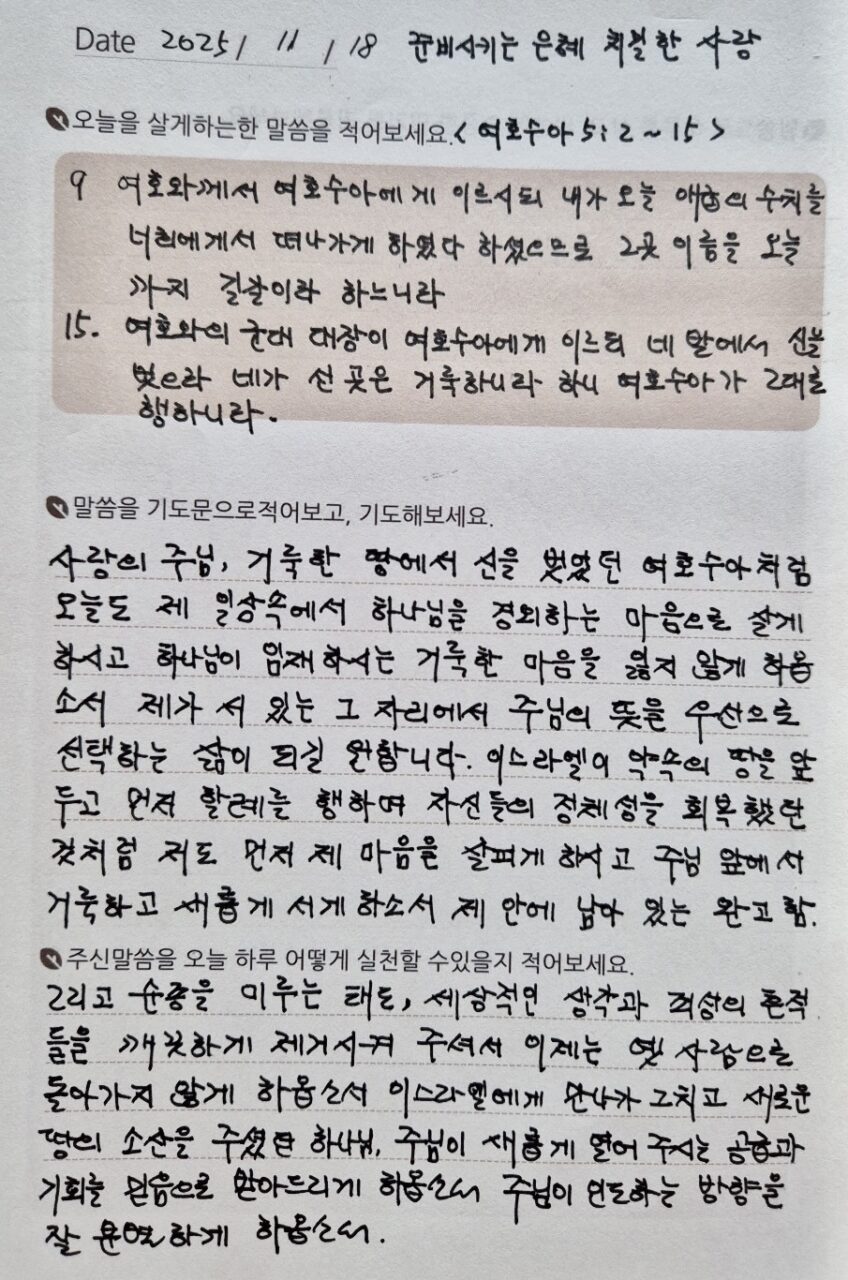 Date 2025/ 11 / 18 준비시키는 은혜 치밀한 사랑
오늘을 살게하는한 말씀을 적어보세요.< 여호수아 5:2~15 >
9 여호와께서 여호수아에게 이르시되 내가 오늘 애굽의 수치를
너희에게서 떠나가게 하였다 하셨으므로 그곳 이름을 오늘
까지 길갈이라 하느니라
15. 여호와의 군대 대장이 여호수아에게 이르되 네 발에서 신을
벗으라 네가 선 곳은 거룩하니라 하니 여호수아가 그대로
행하니라.
말씀을 기도문으로적어보고, 기도해보세요.
사랑의 주님, 거룩한 땅에서 신을 벗었던 여호수아처럼
오늘도 제 일상속에서 하나님을 경외하는 마음으로 살게
하시고 하나님이 임재하시는 거룩한 마음을 잃지 않게 하옵
소서 제가 서 있는 그 자리에서 주님의 뜻을 우선으로
선택하는 삶이 되길 원합니다. 이스라엘이 약속의 땅을 앞
두고 먼저 할례를 행하며 자신들의 정체성을 회복했던
것처럼 저도 먼저 제 마음을 살피게 하시고 주님 앞에서
거룩하고 새롭게 서게 하소서 제 안에 남아 있는 완고함.
주신말씀을 오늘 하루 어떻게 실천할 수있을지 적어보세요.
그리고 순종을 미루는 태도, 세상적인 생각과 죄성의 흔적
들을 깨끗하게 제거시켜 주셔서 이제는 옛 사람으로
돌아가지 않게 하옵소서 이스라엘에게 만나가 그치고 새로운
땅의 소산을 주셨던 하나님, 주님이 새롭게 열어 주시는 공급과
기회를 믿음으로 받아드리게 하옵소서 주님이 인도하는 방향을
잘 분별하게 하옵소서.